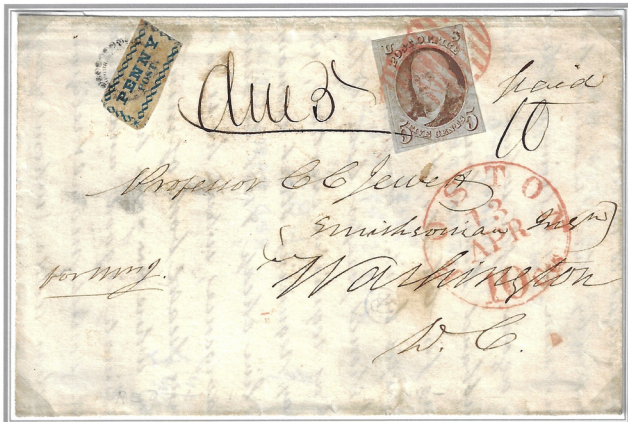 PENNY
POST.
Due 5
POST OFFICE
5 5
FIVE CENTS
paid
10
Professor C C Jewett
Smithsonian Instn
Washington
D. C.
BOSTON
13
APR
10 cts